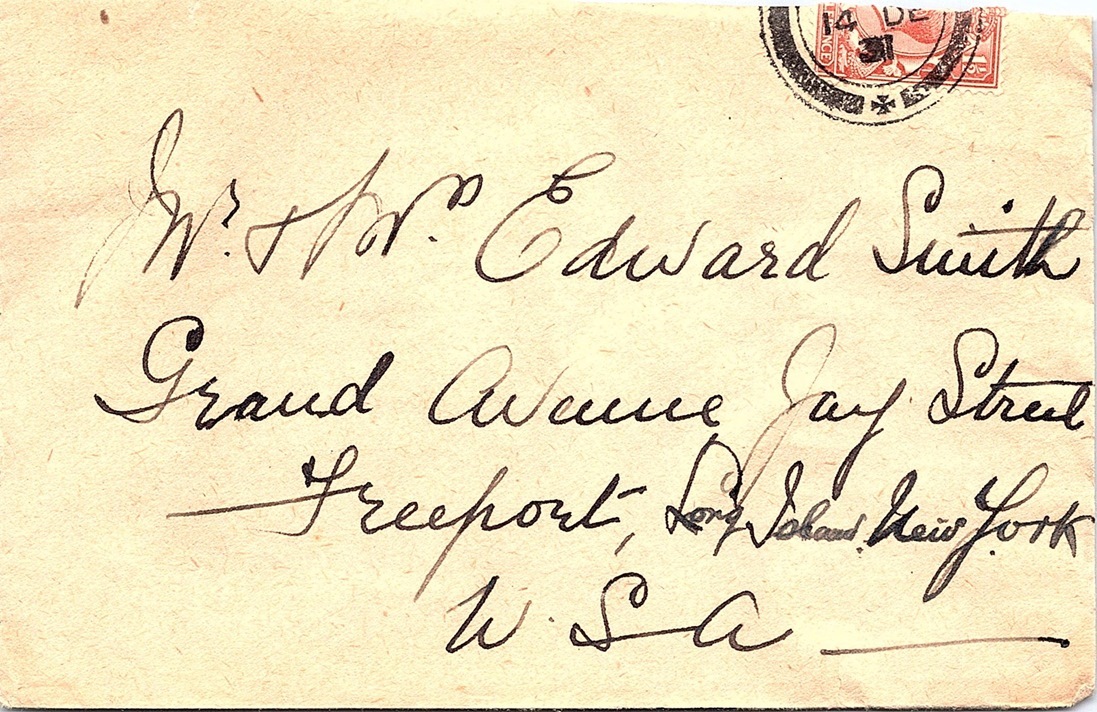 14 DE
31
Mr. & Mrs. Edward Smith
Grand Avenue Jay Street
Freeport, Long Island. New York
U. S. A